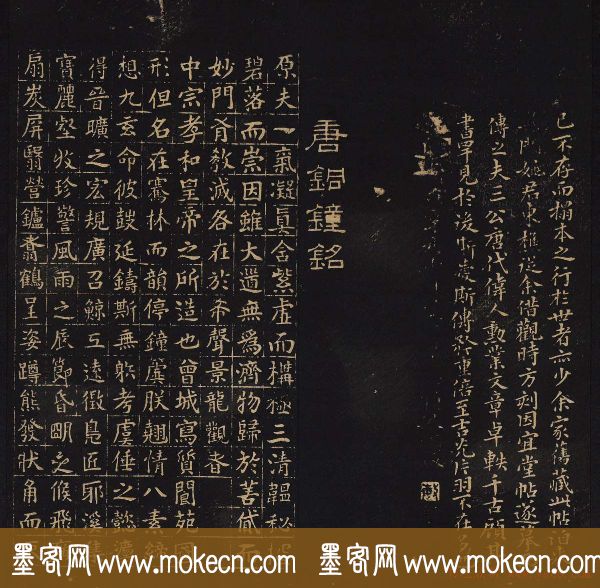 已不存而搨本之行於世者亦少余家舊藏此帖道
姚君東樵從余借觀時方刻因宜堂帖遂
傳之夫三公唐代偉人勳業文章卓軼千古顧
書罕見於後
唐銅鐘銘
原夫一氣凝真含紫虛而構極三清韞秘
碧落而崇因雖大道無為濟物歸於苦
妙門有教減各在於希聲景龍觀者
中宗孝和皇帝之所造也曾城寫質閬苑圖
形但名在騫林而韻停鐘虡朕翹情八素
想九玄命彼鼓延鑄斯無躲考虞倕之懿
得晉曠之宏規廣召鯨工遠徵鳧匠耶溪
寶麗壑收珍警風雨之辰節昏明之候飛
扇炭屏翳營鑪翥鶴呈姿蹲熊發狀角而
墨客网 www.mokecn.com
墨客网 www.mokecn.com